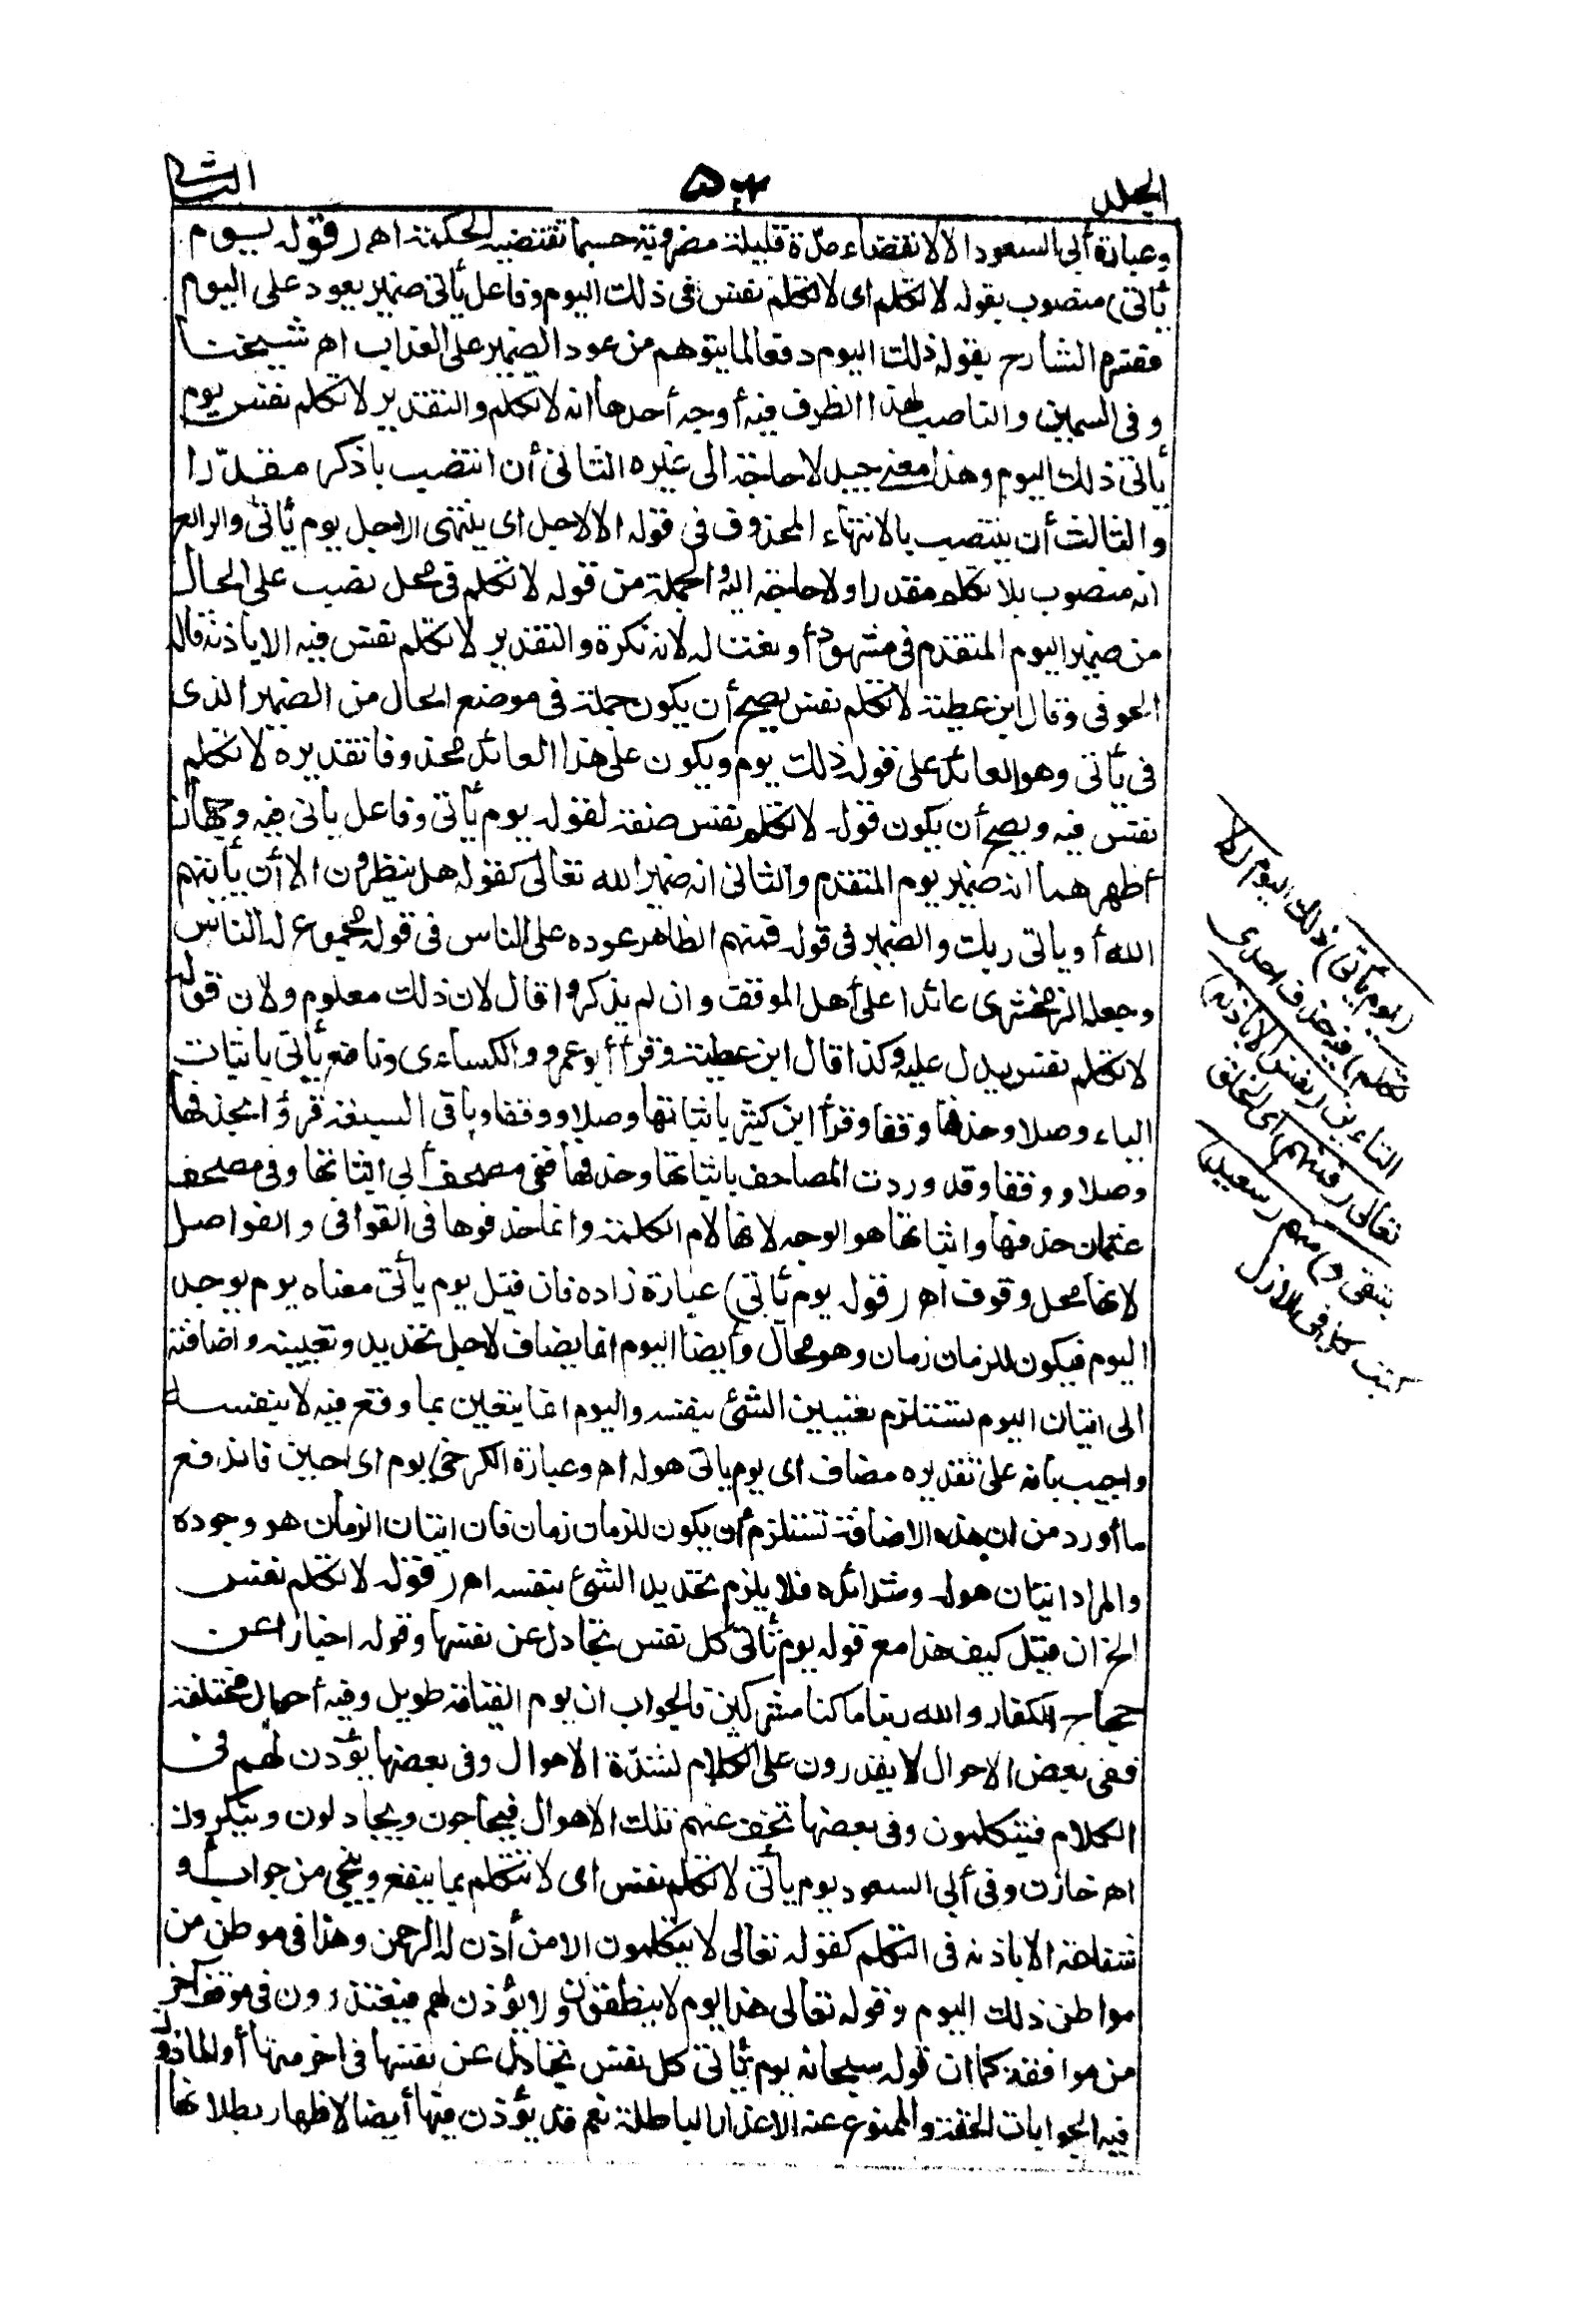 الجلد
٥٠٣
الثانى
وعبارة أبى السعود الا لانقضاء مدّة قليلة مضروبة حسبما تقتضيه الحكمة اه (قوله يوم
يأتى) منصوب بقوله لا تكلم اى لا تتكلم نفس فى ذلك اليوم وفاعل يأتى ضمير يعود على اليوم
ففسره الشارح بقوله ذلك اليوم دفعا لما يتوهم من عود الضمير على العذاب اه شيخنا
وفى السمين والناصب لهذا الظرف فيه أوجه أحدها انه لا تكلم والتقدير لا تكلم نفس يوم
يأتى ذلك اليوم وهذا معنى جيد لا حاجة الى غيره الثانى أن انتصب باذكر مقدّرا
والثالث أن ينتصب بالانتهاء المحذوف فى قوله الا لاجل اى ينتهى الاجل يوم يأتى والرابع
انه منصوب بلا تكلم مقدرا ولا حاجة اليه والجملة من قوله لا تكلم فى محل نصب على الحال
من ضمير اليوم المتقدم فى مشهود أو نعتا له لانه نكرة والتقدير لا تكلم نفس فيه الا باذنه قاله
الحوفى وقال ابن عطية لا تكلم نفس يصح أن يكون جملة فى موضع الحال من الضمير الذى
فى يأتى وهو العائد على قوله ذلك يوم ويكون على هذا العائد محذوفا تقديره لا تكلم
نفس فيه ويصح أن يكون قوله لا تكلم نفس صفة لقوله يوم يأتى وفاعل يأتى فيه وجهان
أظهرهما انه ضمير يوم المتقدم والثانى انه ضمير الله تعالى كقوله هل ينظرون الا أن يأتيهم
الله أو يأتى ربك والضمير فى قوله فمنهم الظاهر عوده على الناس فى قوله مجموع له الناس
وجعله الزمخشرى عائدا على أهل الموقف وان لم يذكروا قال لان ذلك معلوم ولان قوله
لا تكلم نفس يدل عليه وكذا قال ابن عطية وقرأ أبو عمرو والكساءى ونافع يأتى باثبات
الياء وصلا وحذفها وقفا وقرأ ابن كثير باثباتها وصلا ووقفا وباقى السبعة قرؤا بحذفها
وصلا ووقفا وقد وردت المصاحف باثباتها وحذفها ففى مصحف أبى اثباتها وفى مصحف
عثمان حذفها واثباتها هو الوجه لانها لام الكلمة وانما حذفوها فى القوافى والفواصل
لانها محل وقوف اه (قوله يوم يأتى) عبارة زاده فان قيل يوم يأتى معناه يوم يوجد
اليوم فيكون للزمان زمان وهو محال وأيضا اليوم انما يضاف لاجل تحديده وتعيينه واضافته
الى اتيان اليوم تستلزم تعيين الشئ بنفسه واليوم انما يتعين بما وقع فيه لا بنفسه
واجيب بانه على تقديره مضاف اى يوم ياتى هوله اه وعبارة الكرخى يوم اى حين فاندفع
ما أورد من ان هذه الاضافة تستلزم أن يكون للزمان زمان فان اتيان الزمان هو وجوده
والمراد اتيان هوله وشدائده فلا يلزم تحديد الشئ بنفسه اه (قوله لا تكلم نفس
الخ ان قيل كيف هذا مع قوله يوم تأتى كل نفس تجادل عن نفسها وقوله اخبارا عن
محاجة الكفار والله ربنا ما كنا مشركين فالجواب ان يوم القيامة طويل وفيه أحوال مختلفة
ففى بعض الاحوال لا يقدرون على الكلام لشدّة الاهوال وفى بعضها يؤذن لهم فى
الكلام فيتكلمون وفى بعضها تخف عنهم تلك الاهوال فيحاجون ويجادلون وينكرون
اه خازن وفى أبى السعود يوم يأتى لا تكلم نفس اى لا تتكلم بما ينفع وينجى من جواب أو
شفاعة الا باذنه فى التكلم كقوله تعالى لا يتكلمون الا من أذن له الرحمن وهذا فى موطن من
مواطن ذلك اليوم وقوله تعالى هذا يوم لا ينطقون ولا يؤذن لهم فيعتذرون فى موقف آخر
من موافقه كما ان قوله سبحانه يوم تأتى كل نفس تجادل عن نفسها فى اخر منها أو الماذون
فيه الجوابات الحقة والممنوع عنه الاعذار الباطلة نعم قد يؤذن فيها أيضا لاظهار بطلانها
(يوم يأتى) ذلك اليوم (لا
تكلم) فيه حذف احدى
التاءين (نفس الا باذنه)
تعالى (فمنهم) اى الخلق
شقى و) منهم (سعيد)
كتب كل فى الازل